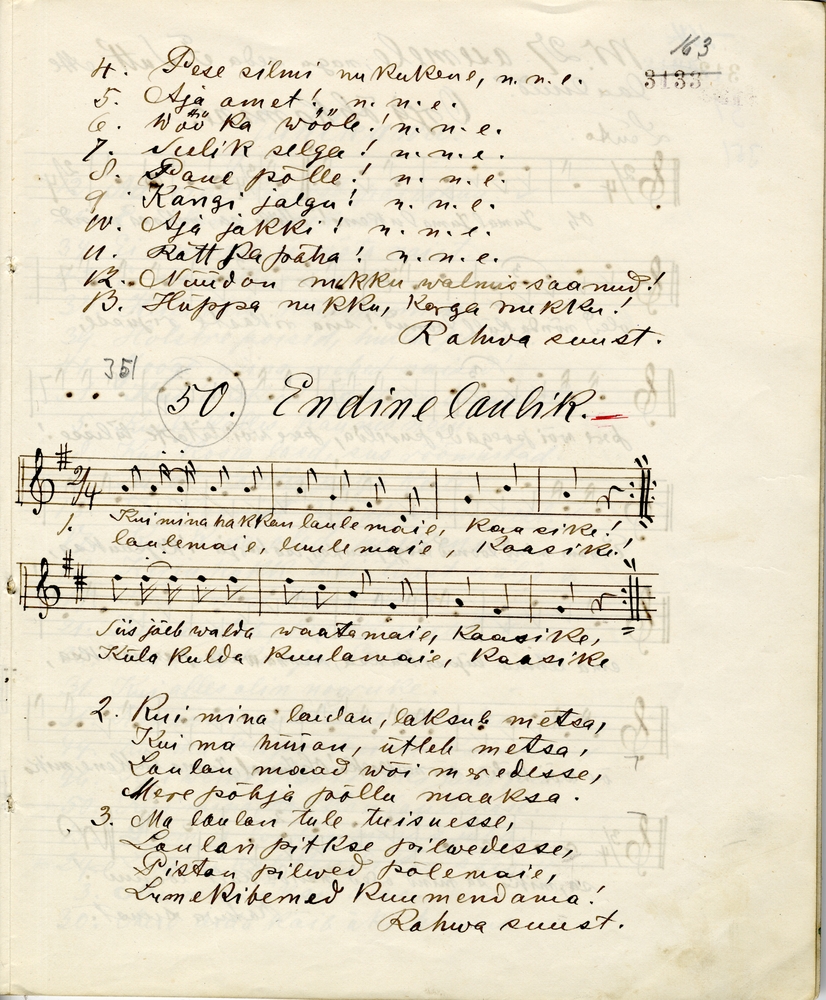 163
3133
4. Pese silmi nukukene, n.n.e.
5. Aja amet! n.n.e.
6. Wöö ka wööle! n.n.e.
7. Seelik selga! n.n.e.
8. Pane põlle! n.n.e.
9. Kängi jalgu! n.n.e.
10. Aja jakki! n.n.e.
11. Rätt ka pähä! n.n.e.
12. Nüüd on nukku walmis saanud!
13. Hüppa nukku, karga nukku!
Rahwa suust.
351
50. Endine laulik.
2/4
1. Kui mina hakkan laulemaie, Kaasike!
laulemaie, luulemaie, Kaasike!
Siis jääb walda waatamaie, Kaasike,
Küla kulda kuulamaie, Kaasike
2. Kui mina laulan, laksub metsa,
Kui ma hüüan, ütleb metsa,
Laulan maad wõi meredesse,
Mere põhja põllu maaksa.
3. Ma laulan tule tuisuesse,
Laulan pitkse pilwedesse,
Pistan pilwed põlemaie,
Lumekibemed kuumendama!
Rahwa suust.